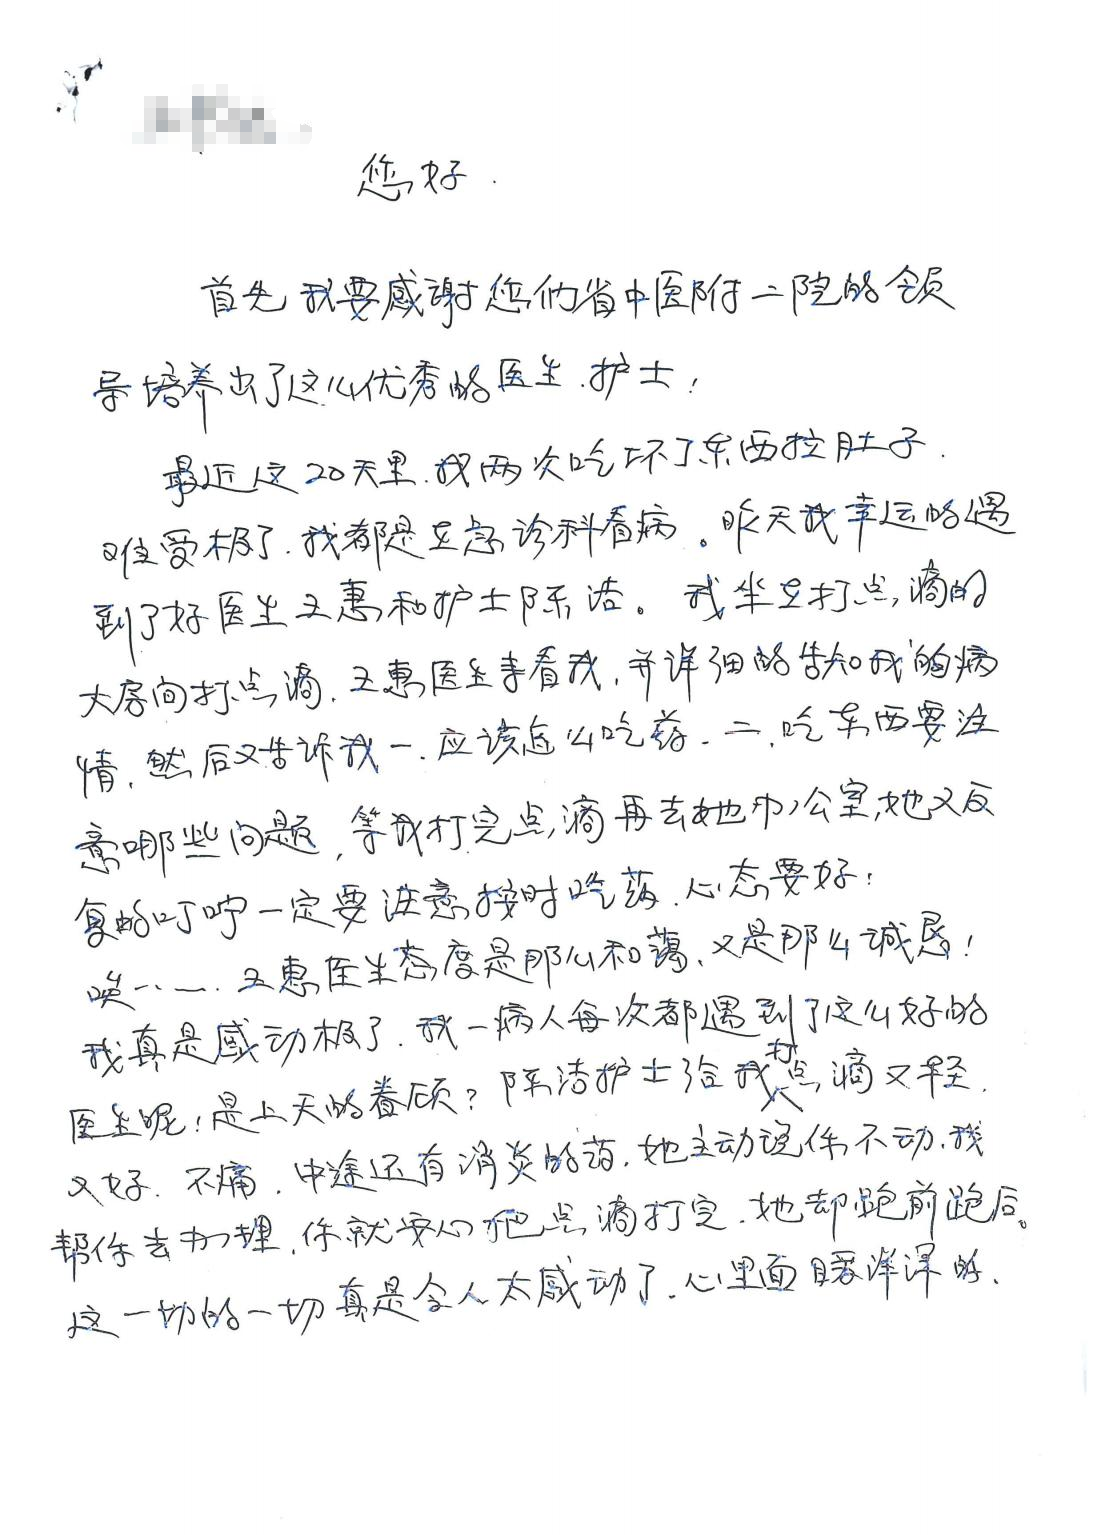 您好.
首先我要感谢您们省中医附二院的领
导培养出了这么优秀的医生.护士!
最近这20天里.我两次吃坏了东西拉肚子.
难受极了.我都是在急诊科看病。昨天我幸运的遇
到了好医生王惠和护士陈洁。我坐在打点滴的
大房间打点滴.王惠医生来看我,并详细的告知我的病
情.然后又告诉我一.应该怎么吃药.二.吃东西要注
意哪些问题,等我打完点滴再去她办公室,她又反
复的叮咛一定要注意按时吃药.心态要好!
唉……王惠医生态度是那么和蔼、又是那么诚恳!
我真是感动极了.我一病人每次都遇到了这么好的
医生呢!是上天的眷顾?陈洁护士给我打点滴又轻.
又好.不痛.中途还有消炎的药.她主动说你不动.我
帮你去办理.你就安心把点滴打完.她却跑前跑后。
这一切的一切真是令人太感动了.心里面暖洋洋的.